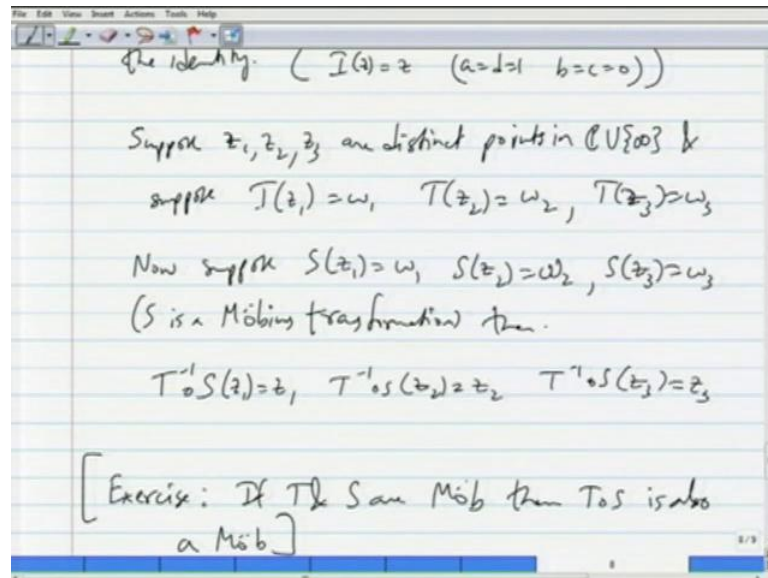 File Edit View Insert Actions Tools Help
the identity. ( I(z) = z (a=d=1 b=c=0))
Suppose z₁, z₂, z₃ are distinct points in ℂ∪{∞} &
suppose T(z₁) = ω₁ T(z₂) = ω₂, T(z₃) = ω₃
Now suppose S(z₁) = ω₁ S(z₂) = ω₂, S(z₃) = ω₃
(S is a Möbius transformation) then.
T⁻¹∘S(z₁) = z₁ T⁻¹∘S(z₂) = z₂ T⁻¹∘S(z₃) = z₃
[Exercise: If T & S are Möb then T∘S is also
a Möb]